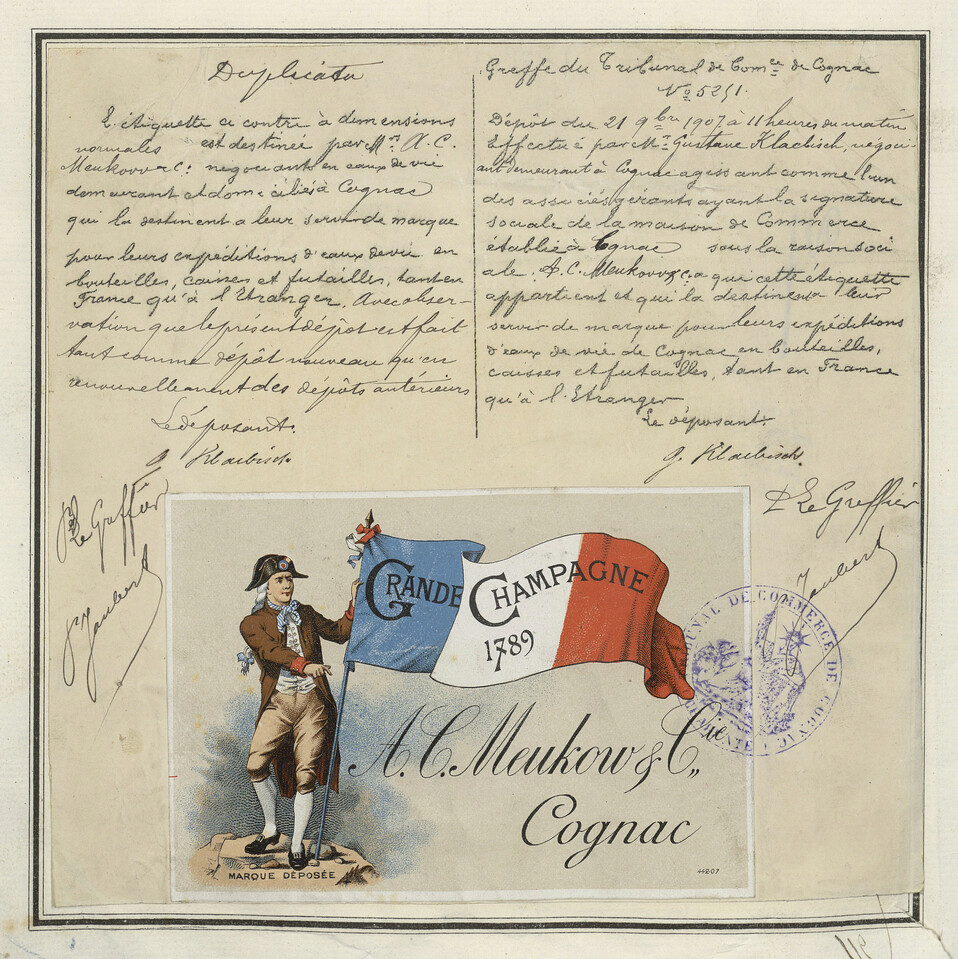 Duplicata
L'étiquette ci contre à dimensions
normales est destinée par Mrs A. C.
Meukow & Co. négociants en eaux de vie
demeurant et domiciliés à Cognac
qui la destinent a leur servir de marque
pour leurs expéditions d'eaux de vie en
bouteilles, caisses et futailles, tant en
France qu'à l'Etranger. Avec obser-
vation que le présent dépôt est fait
tant comme dépôt nouveau qu'en
renouvellement des dépôts antérieurs
Le déposant.
G. Klaebisch
Le Greffier
Jaubert
Greffe du Tribunal de Comce de Cognac
No 5251.
Dépôt du 21 9bre 1907 à 11 heures du matin
Effectué par Mr Gustave Klaebisch, négoci-
ant demeurant à Cognac agissant comme l'un
des associés gérants ayant la signature
sociale de la maison de Commerce
établie à Cognac sous la raison soci
ale A. C. Meukow & C. a qui cette étiquette
appartient et qui la destinent a leur
servir de marque pour leurs expéditions
d'eaux de vie de Cognac en bouteilles,
caisses et futailles, tant en France
qu'à l'Etranger
Le déposant.
G. Klaebisch.
Le Greffier
Jaubert
GRANDE CHAMPAGNE
1789
A. C. Meukow & Cie
Cognac
MARQUE DÉPOSÉE
442-07
TRIBUNAL DE COMMERCE DE COGNAC